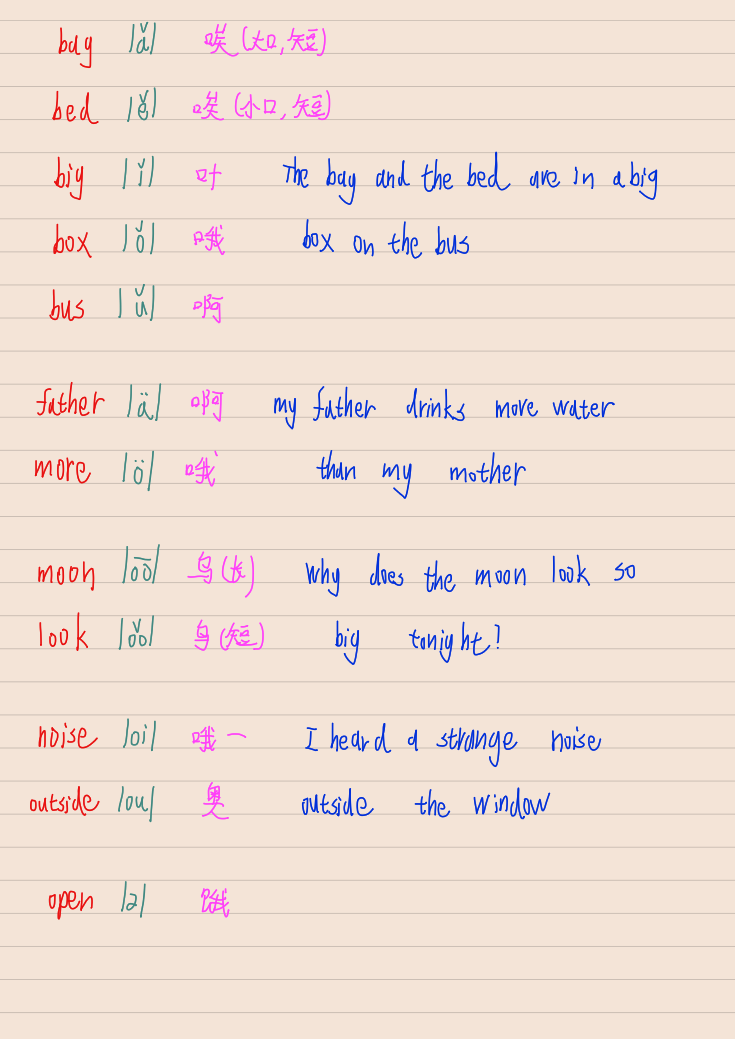 bag /ă/ 唉(大口,短)
bed /ĕ/ 唉(小口,短)
big /ĭ/ 叶 The bag and the bed are in a big
box /ŏ/ 哦 box on the bus
bus /ŭ/ 啊
father /ä/ 啊 my father drinks more water
more /ö/ 哦 than my mother
moon /o͞o/ 乌(长) why does the moon look so
look /o͝o/ 乌(短) big tonight?
noise /oi/ 哦一 I heard a strange noise
outside /ou/ 奥 outside the window
open /ə/ 饿